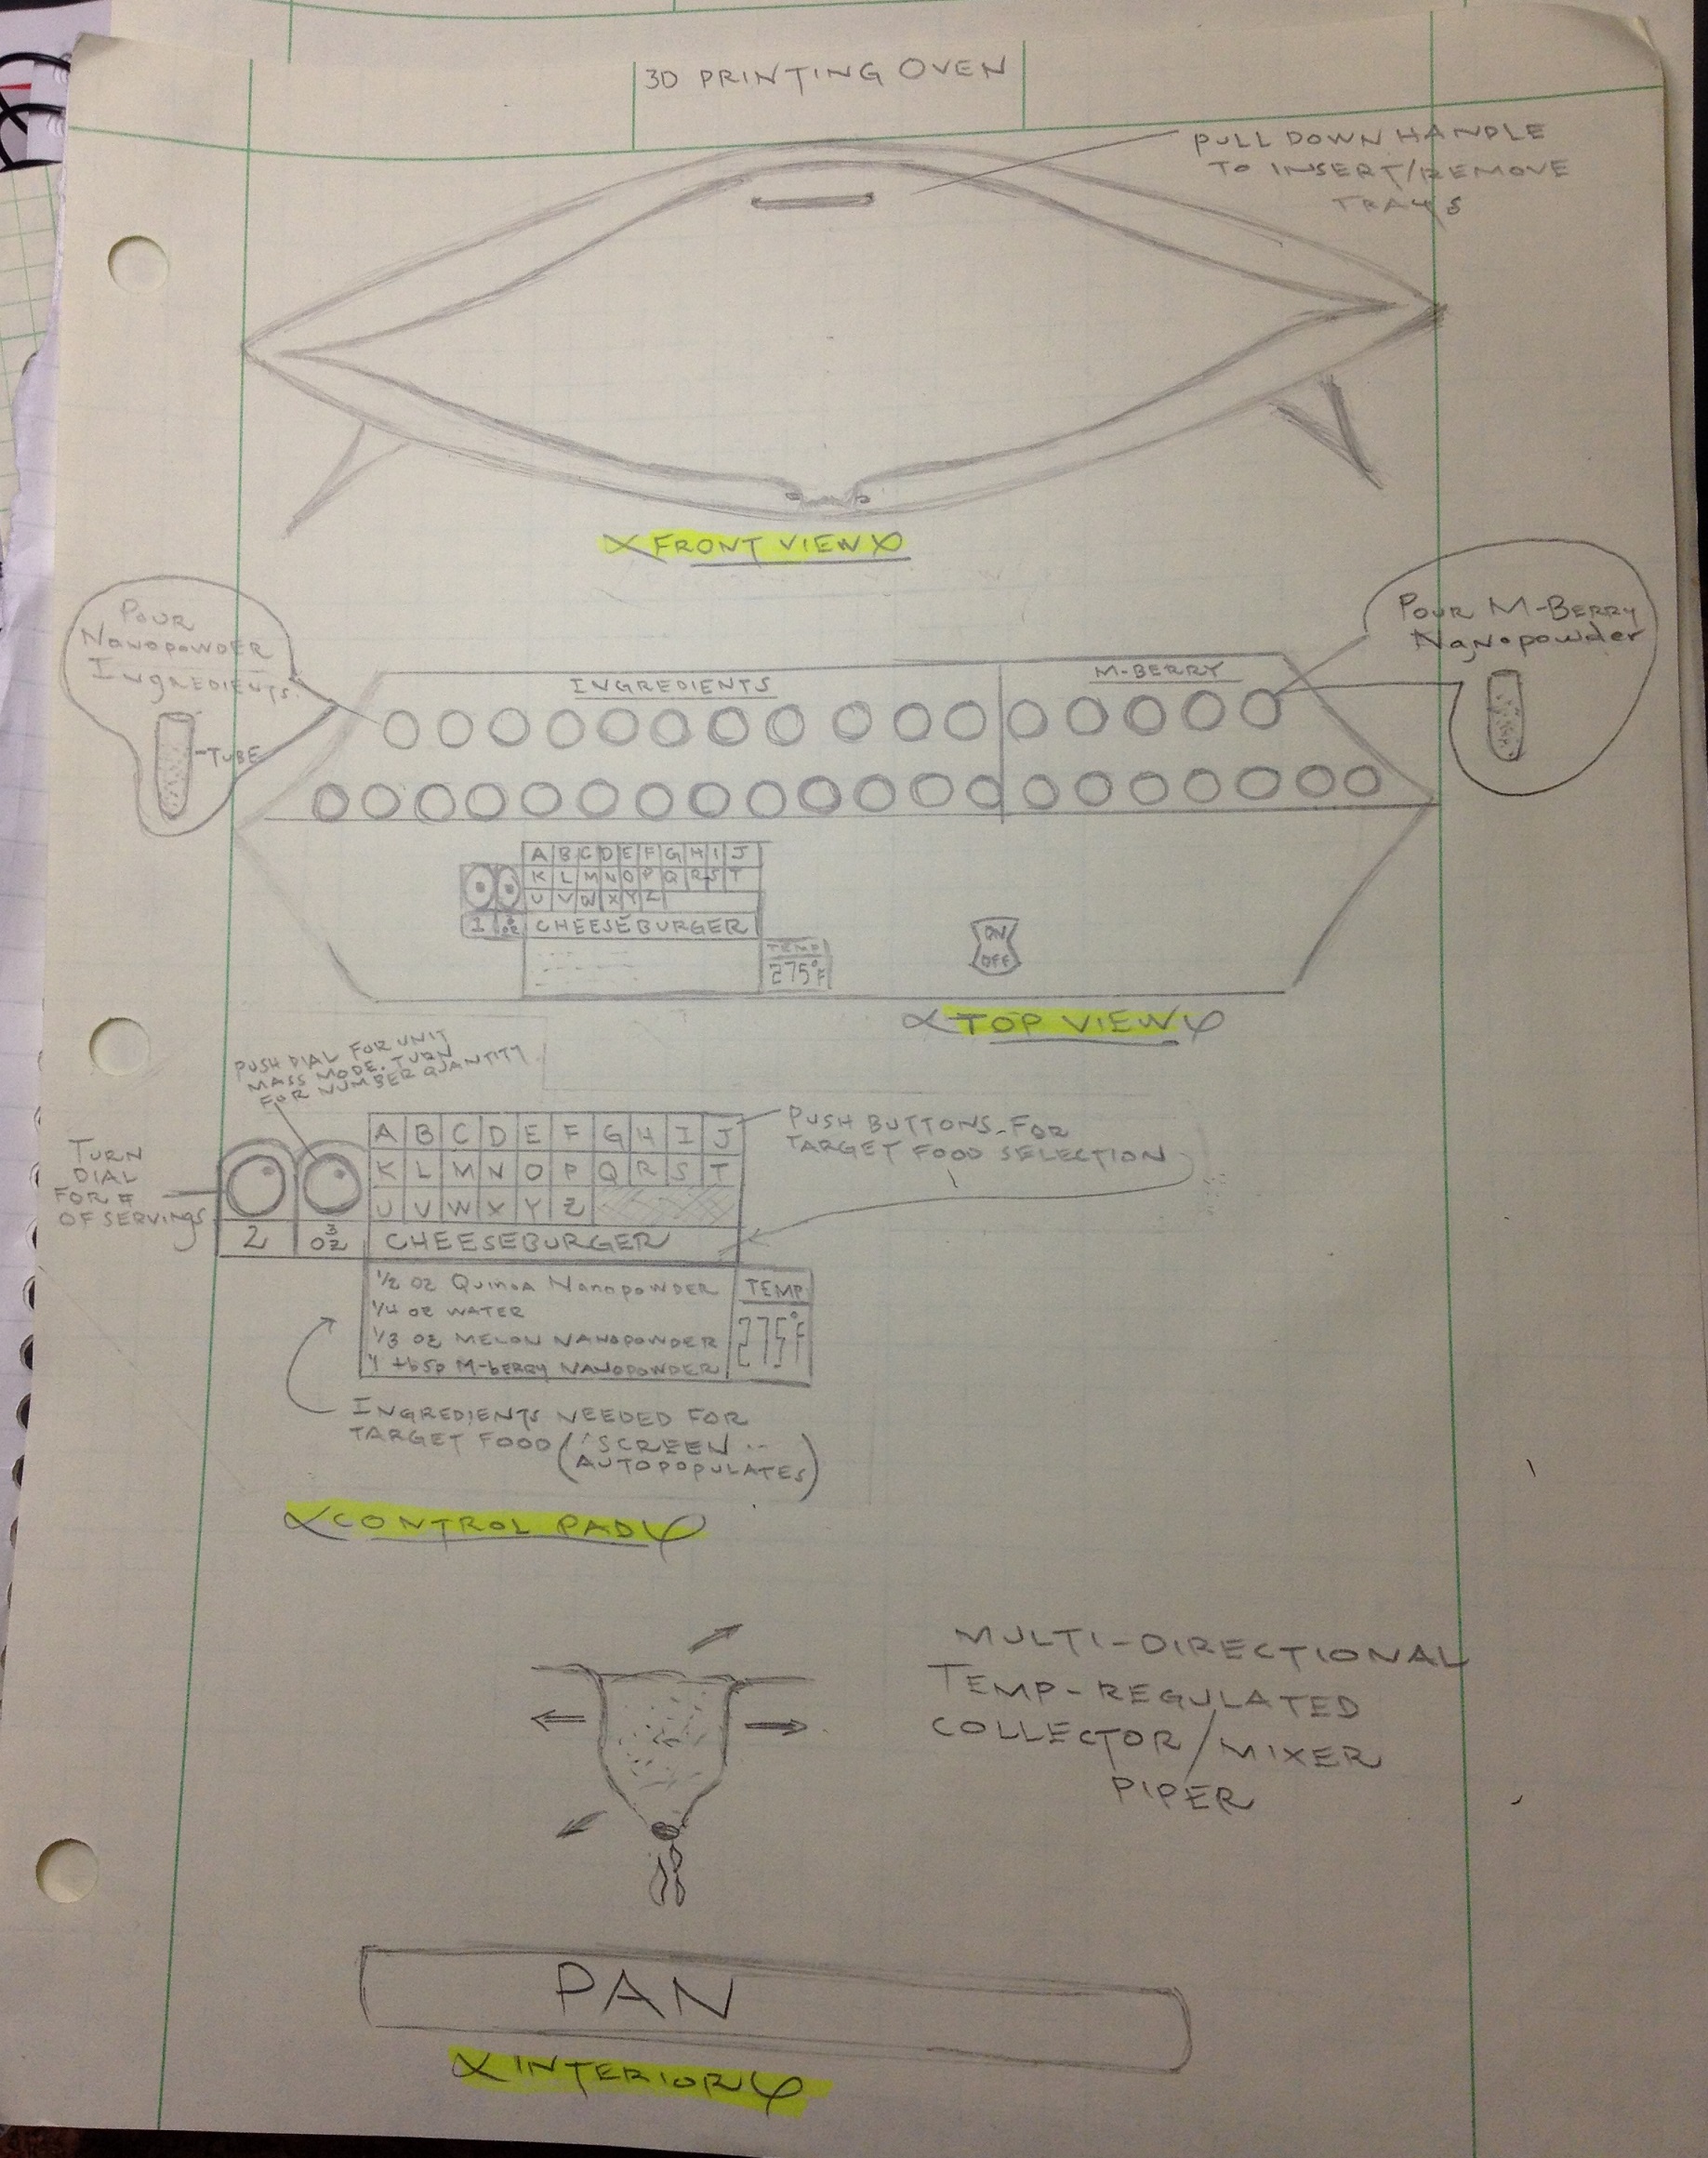 3D PRINTING OVEN
PULL DOWN HANDLE
TO INSERT/REMOVE
TRAYS
FRONT VIEW
POUR
NANOPOWDER
INGREDIENTS
TUBE
POUR M-BERRY
NANOPOWDER
INGREDIENTS
M-BERRY
A B C D E F G H I J
K L M N O P Q R S T
U V W X Y Z
1 3 OZ CHEESEBURGER
TEMP
275°F
ON
OFF
TOP VIEW
PUSH DIAL FOR UNIT
MASS MODE. TURN
FOR NUMBER QUANTITY
TURN
DIAL
FOR #
OF SERVINGS
A B C D E F G H I J
K L M N O P Q R S T
U V W X Y Z
2 3 OZ CHEESEBURGER
PUSH BUTTONS FOR
TARGET FOOD SELECTION
1/2 OZ QUINOA NANOPOWDER
1/4 OZ WATER
1/3 OZ MELON NANOPOWDER
1 tbsp M-BERRY NANOPOWDER
TEMP
275°F
INGREDIENTS NEEDED FOR
TARGET FOOD (SCREEN
AUTOPOPULATES)
CONTROL PAD
MULTI-DIRECTIONAL
TEMP-REGULATED
COLLECTOR/MIXER
PIPER
PAN
INTERIOR